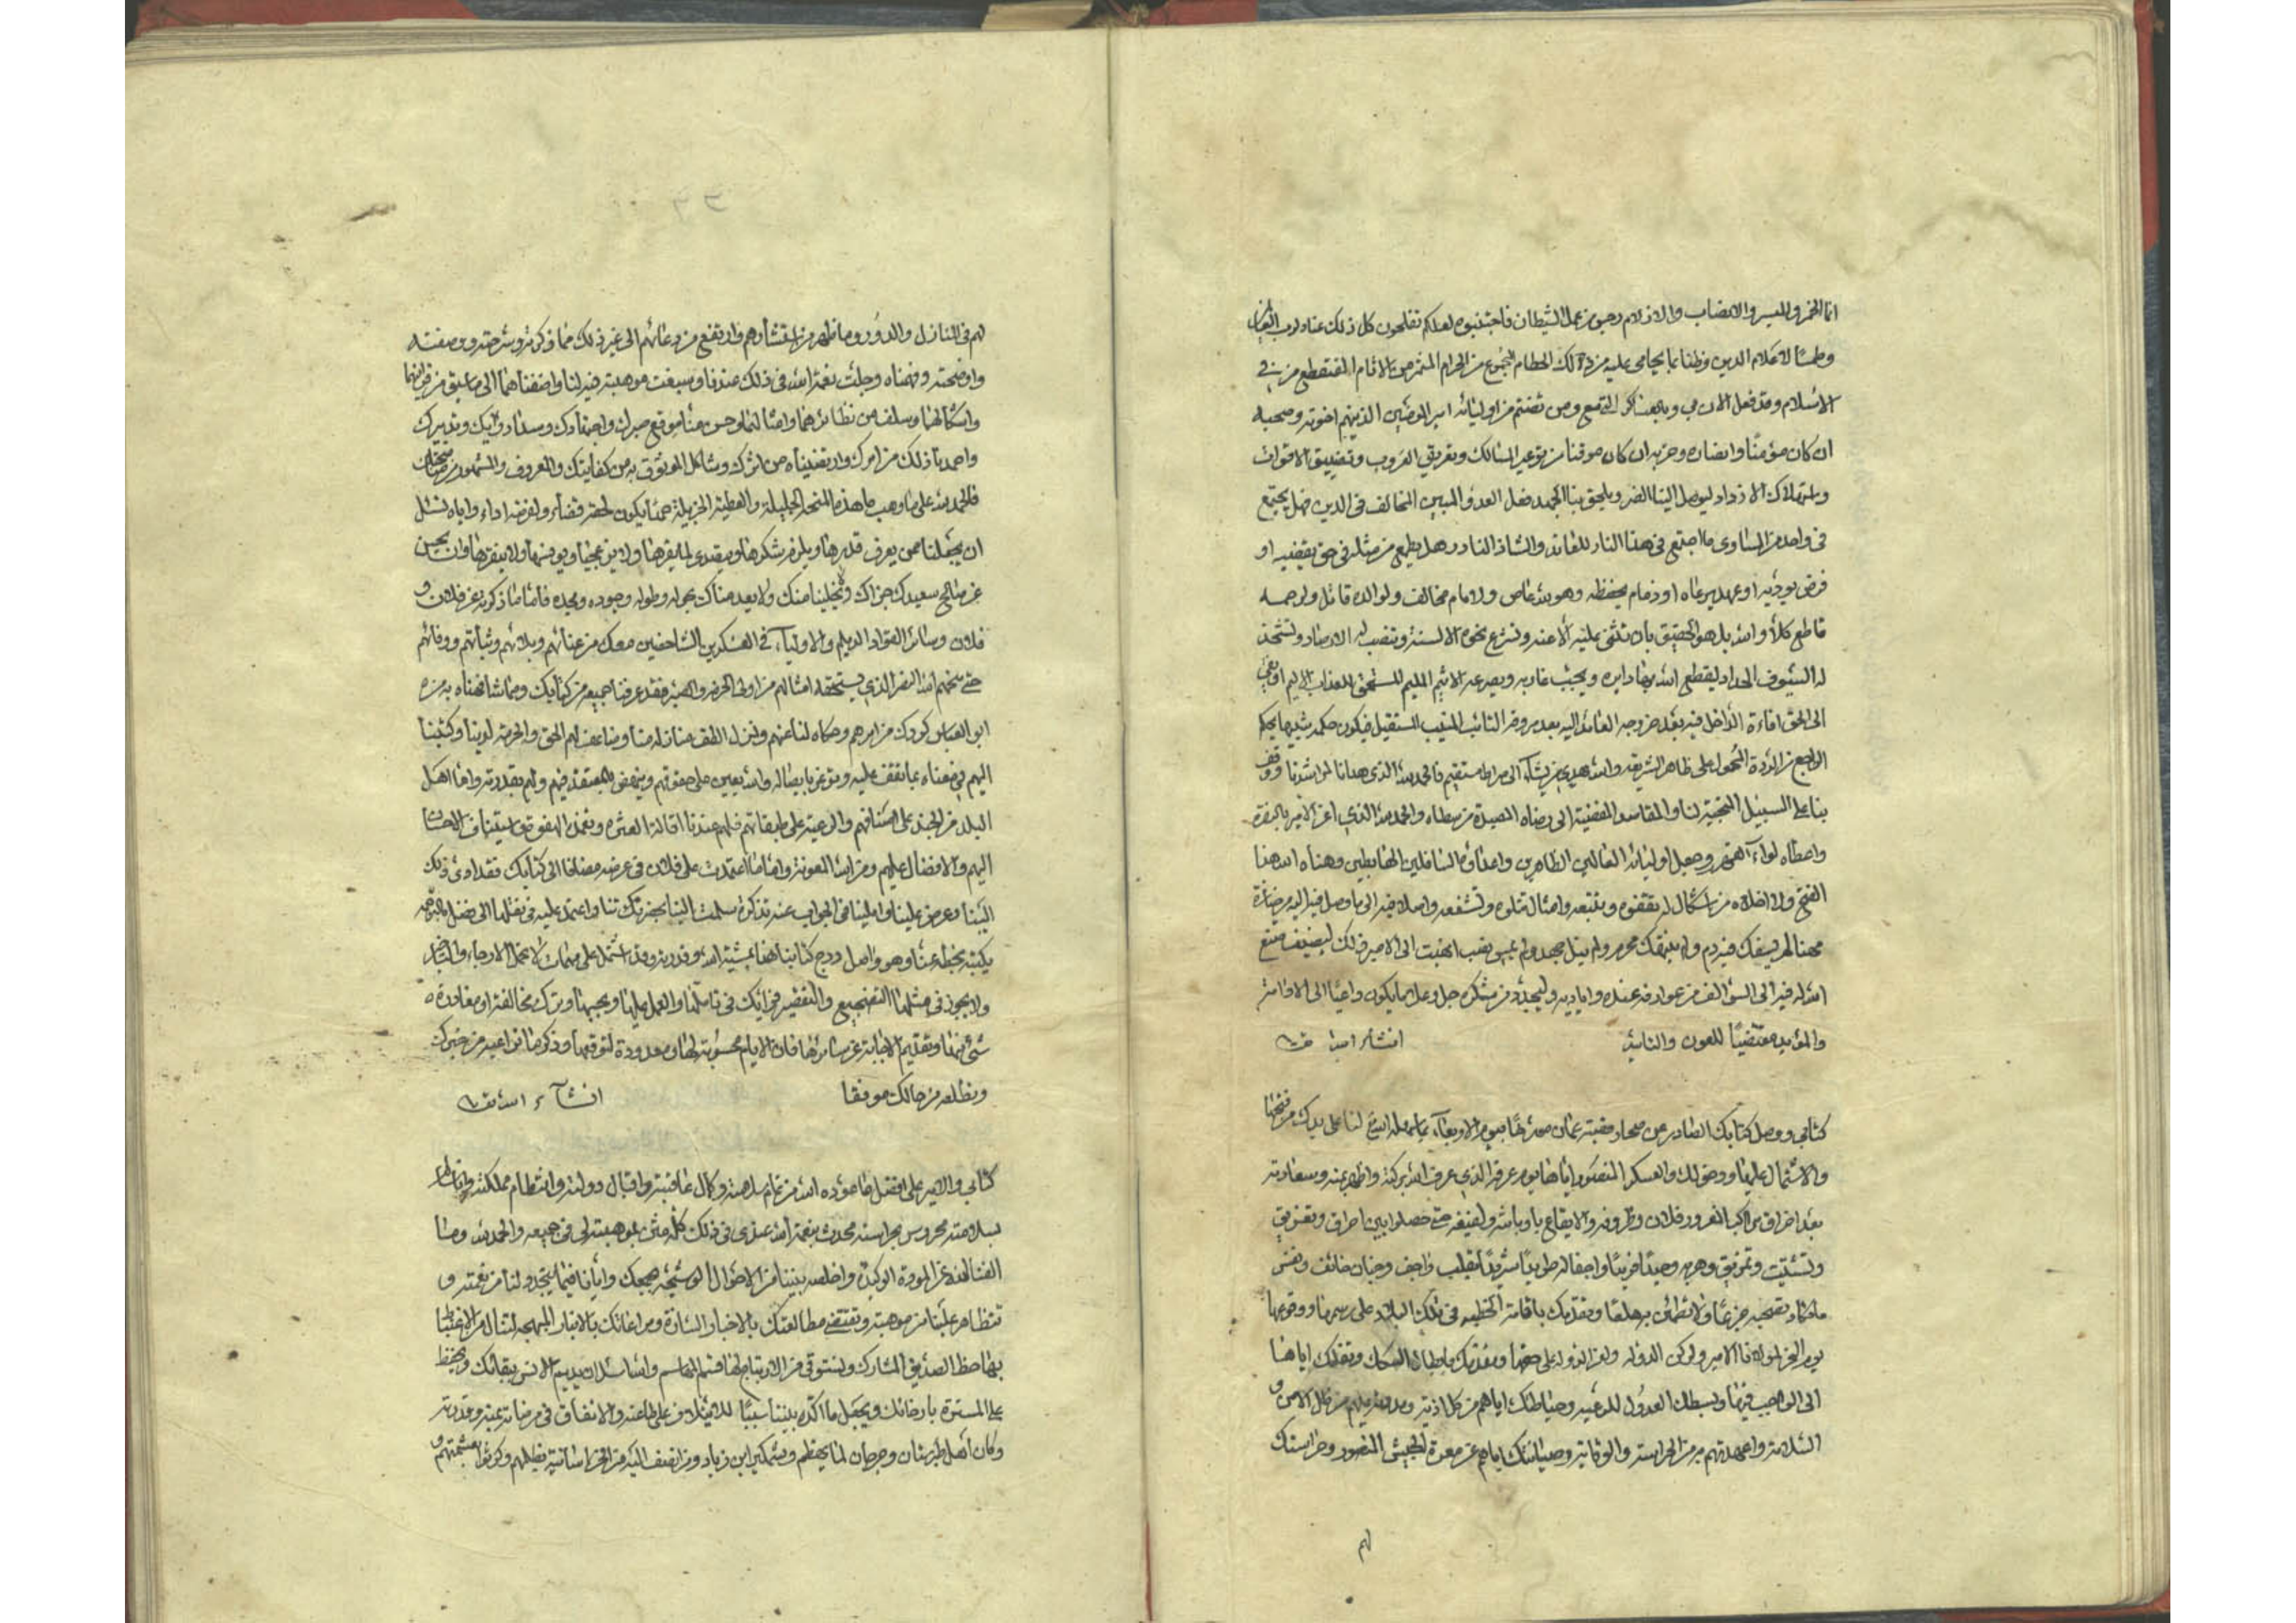 انما الخمر والميسر والانصاب والازلام رجس من عمل الشيطان فاجتنبوه لعلكم تفلحون كل ذلك عنادا لرب
وطمسا لاعلام الدين وظنا بما يحامى عليه من ذلك الحطام المجموع من الحرام المثمر من الاثام المقتطع من في
الاسلام وقد فعل الان بي وبالعساكر التي معي ومن تضمم من اوليائه امير المؤمنين الذين هم اخوته وصحبه
ان كان مؤمنا وانصاره وحزبه ان كان موقنا من توعير المسالك وتغريق الغروب وتضييق الاقوات
واستهلاك الازواد ليوصل الينا الضر ويلحق بنا الجهد فعل العدو المبين المخالف في الدين فهل يجتمع
في واحد من المساوى ما اجتمع في هذا الناد العاند والشاذ النادر وهل يطمع من مثله في حق يقضيه او
فرض يوديه او عهد يرعاه او ذمام يحفظه وهو لله عاص ولامام مخالف ولوالده قاتل ولرحمه
قاطع كلا والله بل هو الحقيق بان تثنى عليه الاعنة وتشرع نحوه الاسنة وتنصب له الارصاد وتشحذ
له السيوف الحداد ليقطع الله بها دابره ويجب غاربه ويصرعه مصرع الاثيم المليم المستحق للعذاب الاليم او يفئ
الى الحق افاءة الداخل فيه بعد خروجه العائد اليه بعد مروقه التائب المنيب المستقيل فيكون حكمه شبيها بحكم
الراجع من الردة المحمول على ظاهر الشريعة والله يهدي من يشاء الى صراط مستقيم فالحمد لله الذي هدانا لمراشدنا ووقف
بنا على السبيل المنجية لنا والمقاصد المفضية الى رضاه البعيدة من سطاه والحمد لله الذي اعز الامير بالنصرة
واعطاه لواء القهر وجعل اولياءه الغالبين الظاهرين واعداءه السافلين الهابطين وهناه الله هذا
الفتح ولا اخلاه من اشكال له تقفوه وتتبعه وامثال تتلوه وتشفعه واصلا فيه الى ما وصل فيه اليه من حيازة
مهنا لم يسفك فيه دم ولم ينتهك محرم ولم ينل جهد ولم يمس نصب انهيت الى الامير ذلك ليضيف صنع
الله له فيه الى السوالف من عوارفه عنده واياديه وليجدد من شكره جل وعلا ما يكون داعيا الى الادامة
والمزيد مقتضيا للعون والتاييد ان شاء الله
كتابي ووصل كتابك الصادر من صحار قصبة عمان مورخا بيوم الاربعاء بما سهله الله لنا على يدك من فتحها
والاشتمال عليها ودخولك والعسكر المنصور اياها يوم عرفة الذي عرف الله بركته واظهر يمنه وسعادته
بعد احراق مراكب المغرور فلان وظروفه والايقاع باوباشه ولفيفه حتى حصلوا بين احراق وتغريق
وتشتيت وتمزيق وهربه وحيدا فريدا واجفاله طريدا شريدا بقلب واجف وجنان خائف ونفس
ما تكاد تصحبه جزعا ولا تطمئن به هلعا وتقدمك باقامة الخطبة في تلك البلاد على رسمها ووقوعها
يوم النحر لمولانا الامير ولركن الدولة ولعز الدولة على حقها وتقدمك بابطال السكك ونقلك اياها
الى الواجب فيها وبسطك العدل للرعية وحياطتك اياهم من كل اذية ومد عليهم من ظل الامن و
السلامة واعمدتهم به من الحراسة والوقاية وصيانتك اياهم عن معرة الجيش المنصور وحراستك
لهم
لهم في المنازل والدور وما ظهر من استبشارهم وارتفع من دعائهم الى غير ذلك مما ذكرته وشرحته ووصفته
واوضحته وفهمناه وجلت نعمة الله في ذلك عندنا وسبغت موهبته فيه لنا واضفناها الى ما سبق من قرائنها
واشكالها وسلف من نظائرها وامثالها وحسن منا موقع صبرك واجتهادك وسداد رايك وتدبيرك
واحمدنا ذلك من امرك وارتضيناه من اثرك وشاكل الموثوق به من كفايتك والمعروف والمشهور من
فالحمد لله على ما وهب من هذه المنحة الجليلة والعطية الجزيلة حمدا يكون لحقه قضاء ولفرضه اداء واياه نسئل
ان يجعلنا ممن يعرف قدرها ويلزم شكرها ويتعدى لما يقرها ولا يزعجها ويونسها ولا ينفرها وان يحسن
عن صالح سعيك جزاك ولا يخلينا منك ولا يعدمناك بحوله وطوله وجوده ومجده فاما ما ذكرته عن فلان و
فلان وسائر القواد الديلم والاولياء في العسكرين الشاخصين معك من عنائهم وبلائهم وثباتهم ووفائهم
حتى منحهم الله النصر الذي يستحقه امثالهم من اولى الحزم والصبر فقد عرفنا جميعه من كتابك ومما شافهناه به مره
ابو العباس كردك من امرهم وحكاه لنا عنهم ونزل الطف منازله منا وضاعف لهم الحق والحرمة لدينا وكتبنا
اليهم في معناه بما تقف عليه وتوعز بايصاله والله يعين على حقوقهم وينهض بالمعتقد فيهم ولهم بقدرته واما اهل
البلد من الجند على اصنافهم والرعية على طبقاتهم فلهم عندنا اقالة العثرة وتغمد الهفوة واستيناف الاحسان
اليهم والافضال عليهم ومن الله المعونة واما ما اعتمدت على فلان في عرضه مضافا الى كتابك فقد ادى ذلك
الينا وعرض علينا واملينا في الجواب عنه تذكرة سلمت اليه بحضرتنا واعتمد عليه في نقلها الى فصل
يكتبه بخطه عنا وهو واصل درج كتابنا هذا بمشية الله وقدرته وقد اشتمل على مهمات لا تحتمل الارجاء والتاخير
ولا يجوز في مثلها التضجيع والتقصير فرايك في تاملها والعمل عليها وبحسبها وترك مخالفته او مغادرة
شئ منها وتقديم الاجابة عن سائرها فان الايام محسوبة لها ومعدودة لتوقعها وذكر ما نراعيه من خبرك
ونطلعه من حالك موفقا ان شاء الله
كتابي والامير على افضل ما عوده الله من تمام سلامته وكمال عافيته واقبال دولته وانتظام مملكته وانا
بسلامته محروس بحراسته محدث بنعمة الله عندي في ذلك كله مثن بموهبته لي في جميعه والحمد لله وما
الفنا لله عز المودة الوكيدة واخلصه بيننا من الاحوال الوشيجة يبهجك وايانا فيما يتجدد لنا من نعمته و
تتظاهر علينا من موهبته ويقتضي مطالعتك بالاخبار السارة ومراعاتك بالانباء المبهجة لتنال من الاغتباط
بها حظ الصديق المشارك وتستوفى من الارتياح لها قسم المساهم والله اسئل ان يديم الانس ببقائك ويحفظ
على المسرة بارخائك ويجعل ما اكده بيننا سببا للايتلاف على طاعته والاتفاق في مرضاته بمنه وقدرته
وكان اهل طبرستان وجرجان لما بهظهم وشمكير ابن زياد ومن انضف اليه من الخراسانية بظلمهم وكرثوا بغشمهم و